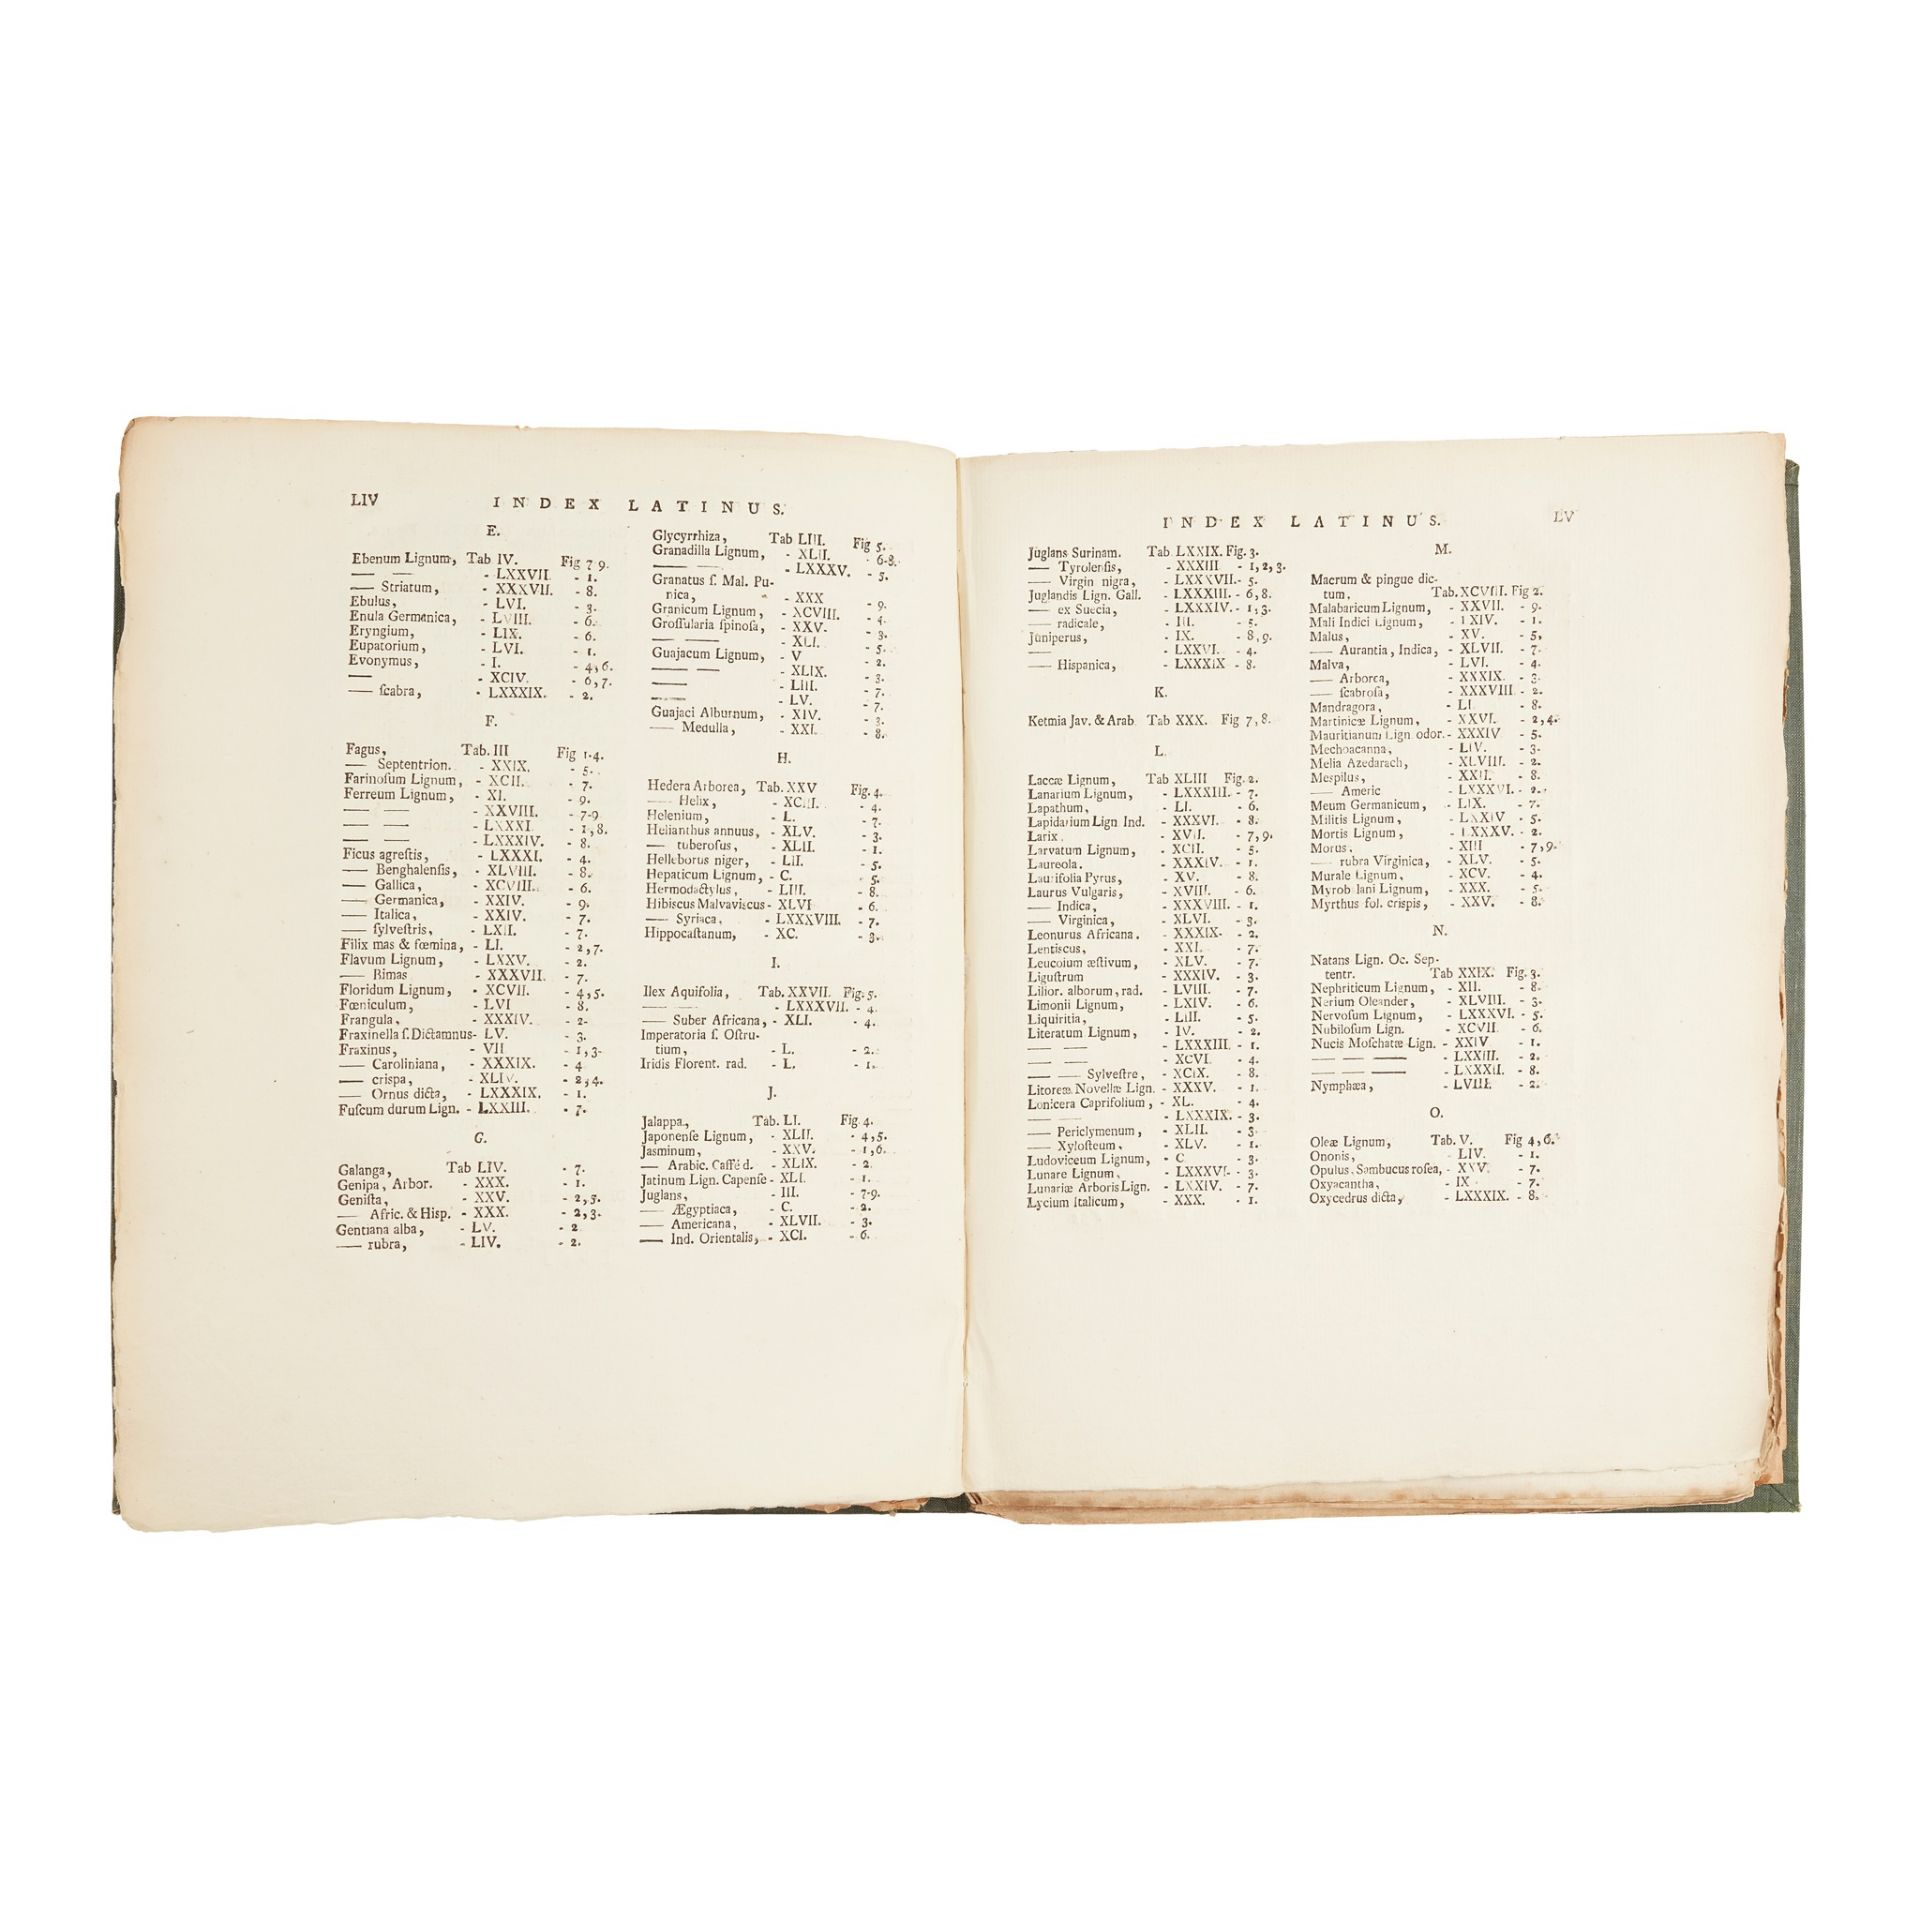 LIV INDEX LATINUS.
E.
Ebenum Lignum, Tab IV. Fig 7 9.
— — - LXXVII. - 1.
— Striatum, - XXXVII. - 8.
Ebulus, - LVI. - 3.
Enula Germanica, - LVIII. - 6.
Eryngium, - LIX. - 6.
Eupatorium, - LVI. - 1.
Evonymus, - I. - 4, 6.
— - XCIV. - 6, 7.
— ſcabra, - LXXXIX. - 2.
F.
Fagus, Tab. III Fig 1-4.
— Septentrion. - XXIX. - 5.
Farinoſum Lignum, - XCII. - 7.
Ferreum Lignum, - XI. - 9.
— — - XXVIII. - 7-9
— — - LXXXI. - 1, 8.
— — - LXXXIV. - 8.
Ficus agreſtis, - LXXXI. - 4.
— Benghalenſis, - XLVIII. - 8.
— Gallica, - XCVIII. - 6.
— Germanica, - XXIV. - 9.
— Italica, - XXIV. - 7.
— ſylveſtris, - LXII. - 7.
Filix mas & fœmina, - LI. - 2, 7.
Flavum Lignum, - LXXV. - 2.
— Bimas - XXXVII. - 7.
Floridum Lignum, - XCVII. - 4, 5.
Fœniculum, - LVI - 8.
Frangula, - XXXIV. - 2-
Fraxinella ſ. Dictamnus - LV. - 3.
Fraxinus, - VII - 1, 3-
— Caroliniana, - XXXIX. - 4
— crispa, - XLIV. - 2, 4.
— Ornus dicta, - LXXXIX. - 1.
Fuſcum durum Lign. - LXXIII. - 7.
G.
Galanga, Tab LIV. - 7.
Genipa, Arbor. - XXX. - 1.
Geniſta, - XXV. - 2, 5.
— Afric. & Hisp. - XXX. - 2, 3.
Gentiana alba, - LV. - 2
— rubra, - LIV. - 2.
Glycyrrhiza, Tab LIII. Fig 5.
Granadilla Lignum, - XLII. - 6-8.
— — - LXXXV. - 5.
Granatus ſ. Mal. Pu-
nica, - XXX - 9.
Granicum Lignum, - XCVIII. - 4.
Groſſularia ſpinoſa, - XXV. - 3.
— — - XLI. - 5.
Guajacum Lignum, - V - 2.
— — - XLIX. - 3.
— - LIII. - 7.
— - LV. - 7.
Guajaci Alburnum, - XIV. - 3.
— Medulla, - XXI. - 8.
H.
Hedera Arborea, Tab. XXV Fig. 4.
— Helix, - XCIII. - 4.
Helenium, - L. - 7.
Helianthus annuus, - XLV. - 3.
— tuberoſus, - XLII. - 1.
Helleborus niger, - LII. - 5.
Hepaticum Lignum, - C. - 5.
Hermodactylus, - LIII. - 8.
Hibiscus Malvaviscus - XLVI - 6.
— Syriaca, - LXXXVIII. - 7.
Hippocaſtanum, - XC. - 3.
I.
Ilex Aquifolia, Tab. XXVII. Fig. 5.
— — - LXXXVII. - 4.
— Suber Africana, - XLI. - 4.
Imperatoria ſ. Oſtru-
tium, - L. - 2.
Iridis Florent. rad. - L. - 1.
J.
Jalappa, Tab. LI. Fig 4.
Japonenſe Lignum, - XLII. - 4, 5.
Jasminum, - XXV. - 1, 6.
— Arabic. Caffé d. - XLIX. - 2
Jatinum Lign. Capenſe - XLI. - 1.
Juglans, - III. - 7-9.
— Ægyptiaca, - C. - 2.
— Americana, - XLVII. - 3.
— Ind. Orientalis, - XCI. - 6.
INDEX LATINUS. LV
Juglans Surinam. Tab. LXXIX. Fig. 3.
— Tyrolenſis, - XXXIII - 1, 2, 3.
— Virgin nigra, - LXXXVII. - 5.
Juglandis Lign. Gall. - LXXXIII. - 6, 8.
— ex Suecia, - LXXXIV. - 1, 3.
— radicale, - III. - 5.
Juniperus, - IX. - 8, 9.
— - LXXVI. - 4.
— Hispanica, - LXXXIX - 8.
K.
Ketmia Jav. & Arab Tab XXX. Fig 7, 8.
L.
Laccæ Lignum, Tab XLIII Fig. 2.
Lanarium Lignum, - LXXXIII. - 7.
Lapathum, - LI. - 6.
Lapidarium Lign Ind. - XXXVI. - 8.
Larix. - XVII. - 7, 9.
Larvatum Lignum, - XCII. - 5.
Laureola. - XXXIV. - 1.
Laurifolia Pyrus, - XV. - 8.
Laurus Vulgaris, - XVIII. - 6.
— Indica, - XXXVIII. - 1.
— Virginica, - XLVI. - 3.
Leonurus Africana. - XXXIX. - 2.
Lentiscus, - XXI. - 7.
Leucoium æſtivum, - XLV. - 7.
Liguſtrum - XXXIV. - 3.
Lilior. alborum, rad. - LVIII. - 7.
Limonii Lignum, - LXIV. - 6.
Liquiritia, - LIII. - 5.
Literatum Lignum, - IV. - 2.
— — - LXXXIII. - 1.
— — - XCVI. - 4.
— — Sylveſtre, - XCIX. - 8.
Litoreæ Novellæ Lign. - XXXV. - 1.
Lonicera Caprifolium, - XL. - 4.
— — - LXXXIX. - 3.
— Periclymenum, - XLII. - 3.
— Xyloſteum. - XLV. - 1.
Ludoviceum Lignum, - C - 3.
Lunare Lignum, - LXXXVI. - 3.
Lunariæ Arboris Lign. - LXXIV. - 7.
Lycium Italicum, - XXX. - 1.
M.
Macrum & pingue dic-
tum, Tab. XCVIII. Fig 2.
Malabaricum Lignum, - XXVII. - 9.
Mali Indici Lignum, - LXIV. - 1.
Malus, - XV. - 5,
— Aurantia, Indica, - XLVII. - 7.
Malva, - LVI. - 4.
— Arborea, - XXXIX. - 3.
— ſcabroſa, - XXXVIII. - 2.
Mandragora, - LI - 8.
Martinicæ Lignum, - XXVI. - 2, 4.
Mauritianum Lign odor. - XXXIV - 5.
Mechoacanna, - LIV. - 3.
Melia Azedarach, - XLVIII. - 2.
Mespilus, - XXII. - 8.
— Americ - LXXXVI. - 2.
Meum Germanicum, - LIX. - 7.
Militis Lignum, - LXXIV - 5.
Mortis Lignum, - LXXXV. - 2.
Morus, - XIII - 7, 9.
— rubra Virginica, - XLV. - 5.
Murale Lignum, - XCV. - 4.
Myrobolani Lignum, - XXX. - 5.
Myrthus fol. crispis, - XXV. - 8.
N.
Natans Lign. Oc. Sep-
tentr. Tab XXIX. Fig. 3.
Nephriticum Lignum, - XII. - 8.
Nerium Oleander, - XLVIII. - 3.
Nervoſum Lignum, - LXXXVI. - 5.
Nubiloſum Lign. - XCVII - 6.
Nucis Moſchatæ Lign. - XXIV - 1.
— — — - LXXIII. - 2.
— — — - LXXXII. - 8.
Nymphæa, - LVIII. - 2.
O.
Oleæ Lignum, Tab. V. Fig 4, 6.
Ononis, - LIV. - 1.
Opulus, Sambucus roſea, - XXV. - 7.
Oxyacantha, - IX - 7;
Oxycedrus dicta, - LXXXIX. - 8,